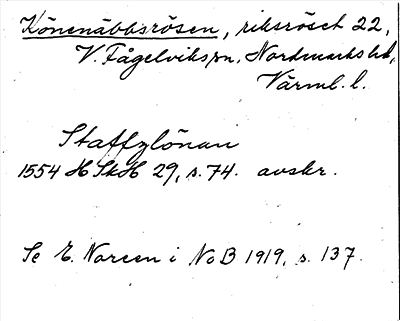 Könenäbbsrösen, riksröset 22,
V. Fågelviks sn, Nordmarks hd,
Värml. l.
Staffzlönan
1554 HSkH 29, s. 74. avskr.
Se E. Noreen i NoB 1919, s. 137.